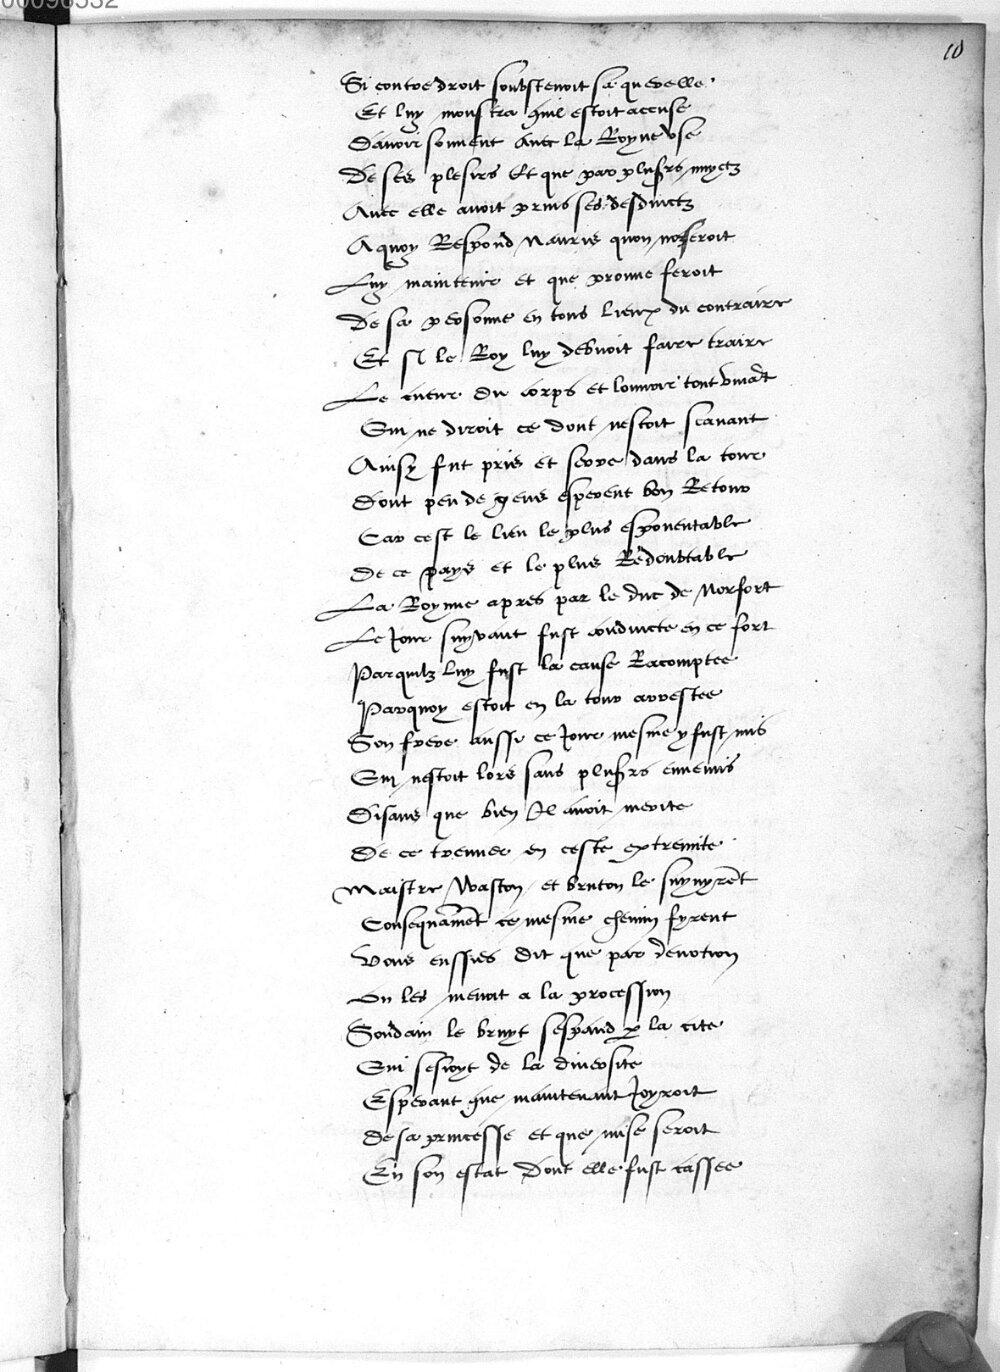 00096332
10
Si contre droit soubstenoit sa querelle
Et luy monstra quil estoit accuse
Davoir souvent avec la Royne use
De ses plesirs Et que par plusrs nuyctz
Avec elle avoit prins ses desduictz
A quoy Respond Nauris quon noseroit
Luy maintenir et que prouve seroit
De sa personne en tous lieux du contraire
Et si le Roy luy debvoit faire traire
Le cueur du corps et louvrir tout vivant
Sin ne diroit ce dont nestoit scavant
Ainsy fut pris et serre dans la tour
Dont peu de gens esperent bon Retour
Car cest le lieu le plus espouentable
De ce pays et le plus Redoubtable
La Royne apres par le duc de Norfort
Le Jour suyvant fust conduicte en ce fort
Par quilz luy fust la cause Racomptee
Parquoy estoit en la tour arrestee
Son frere aussi ce Jour mesme y fust mis
Qui nestoit lors sans plusrs ennemis
Disans que bien Il avoit merite
De ce trouver en ceste extremite
Maistre Waston et bruton le suyvyrent
Consequament ce mesme chemin fyrent
Vous eussies dit que par devotion
On les menoit a la procession
Soudain le bruyt sespand p la cite
Qui sesioyt de la diversite
Esperant que maintenant Joyroit
De sa princesse et que mise seroit
En son estat dont elle fust cassee